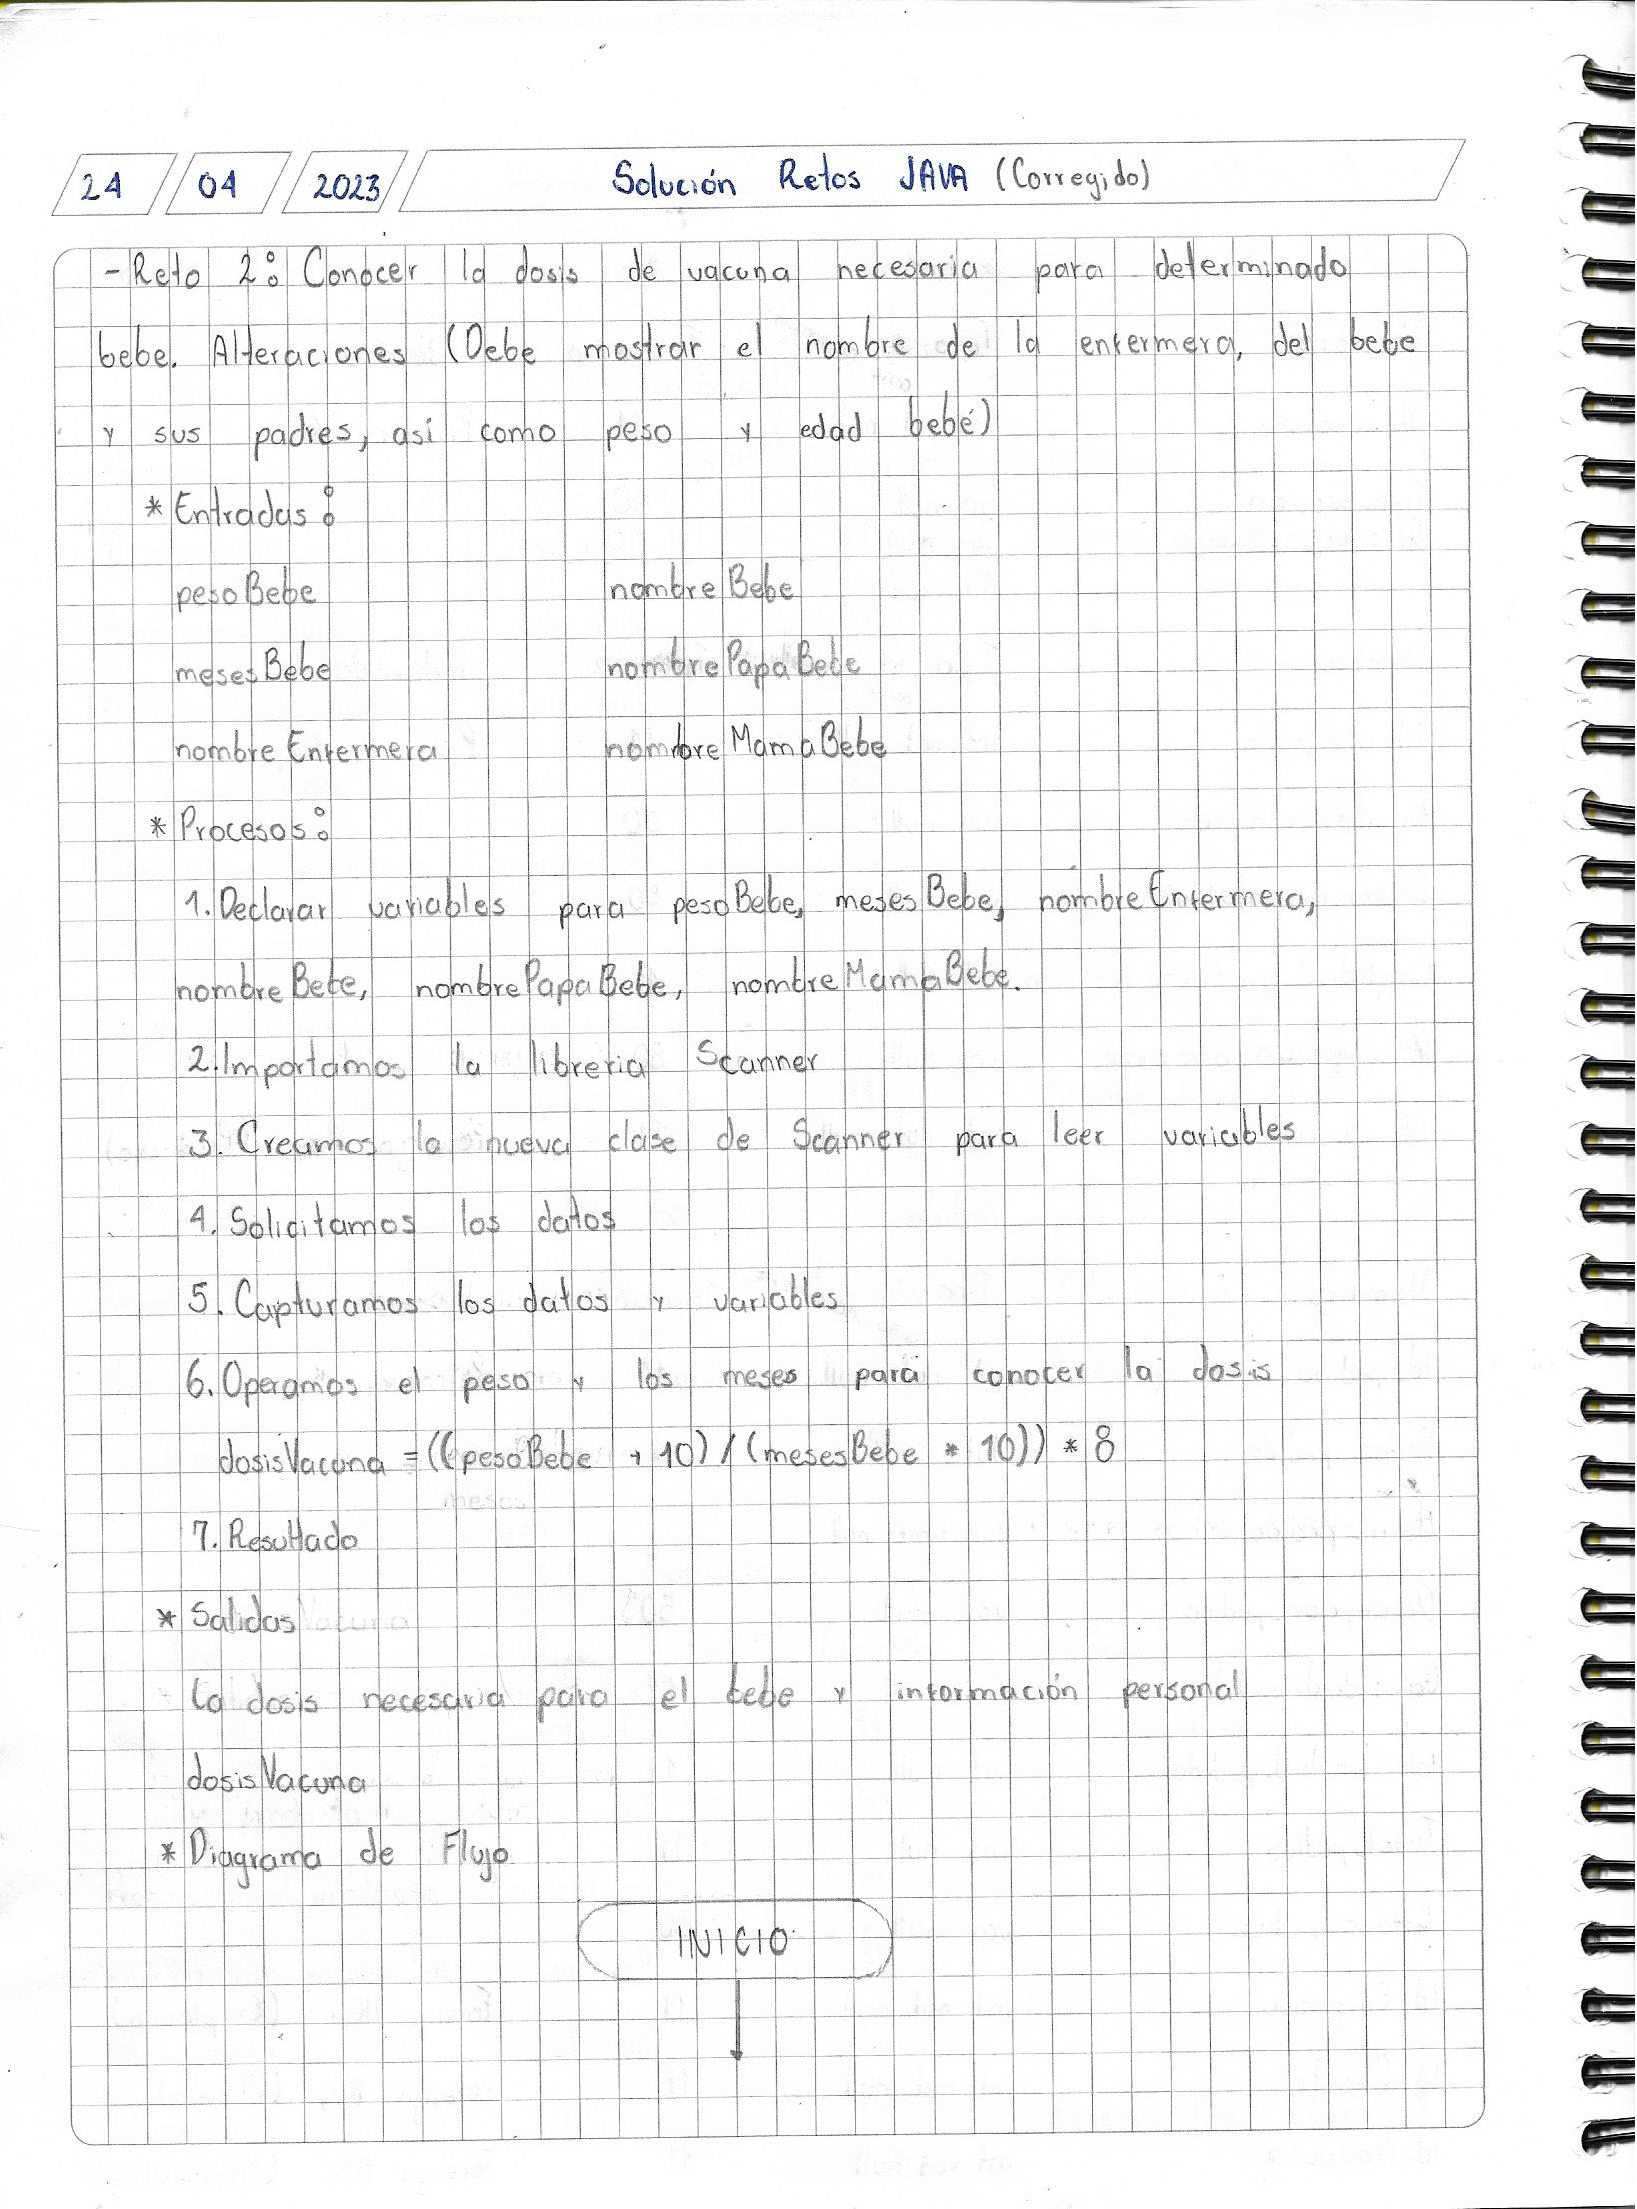 24 04 2023 Solución Retos JAVA (Corregido)
- Reto 2: Conocer la dosis de vacuna necesaria para determinado
bebe. Alteraciones (Debe mostrar el nombre de la enfermera, del bebe
y sus padres, asi como peso y edad bebé)
* Entradas:
pesoBebe nombreBebe
mesesBebe nombrePapaBebe
nombreEnfermera nombreMamaBebe
* Procesos:
1. Declarar variables para pesoBebe, mesesBebe, nombreEnfermera,
nombreBebe, nombrePapaBebe, nombreMamaBebe.
2. Importamos la libreria Scanner
3. Creamos la nueva clase de Scanner para leer variables
4. Solicitamos los datos
5. Capturamos los datos y variables
6. Operamos el peso y los meses para conocer la dosis
dosisVacuna = ((pesoBebe + 10) / (mesesBebe * 10)) * 8
7. Resultado
* Salidas
La dosis necesaria para el bebe y información personal
dosisVacuna
* Diagrama de Flujo
INICIO